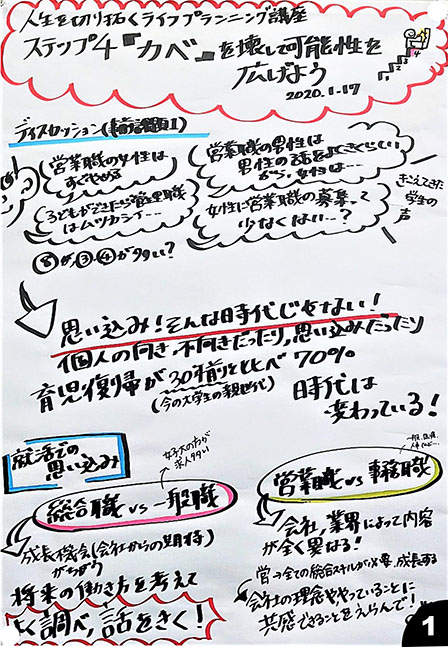 人生を切り拓くライフプランニング講座
ステップ4『カベ』を壊して可能性を
広げよう
2020.1.17
ディスカッション(課題1)
営業職の女性は
すぐやめる
営業職の男性は
男性の話をよくきくらしい
から、女性は…
子どもができたら営業職
はムツカシイ…
女性に営業職の募集って
少なくない…?
きこえてきた
学生の
声
⑧が③④が多い?
思い込み!そんな時代じゃない!
個人の向き,不向きだったり,思い込みだったり
育児復帰が30年前とくらべ70%
(今の大学生の親世代)
時代は
変わっている!
就活での
思い込み
女子大の方が
求人多い
総合職 vs 一般職
成長機会(会社からの期待)
がちがう
将来の働き方を考えて
よく調べ,話をきく!
営業職 vs 事務職
会社,業界によって内容
が全く異なる!
営→全ての総合スキルが必要,成長する
会社の理念ややっていることに
共感できることをえらんで!
1